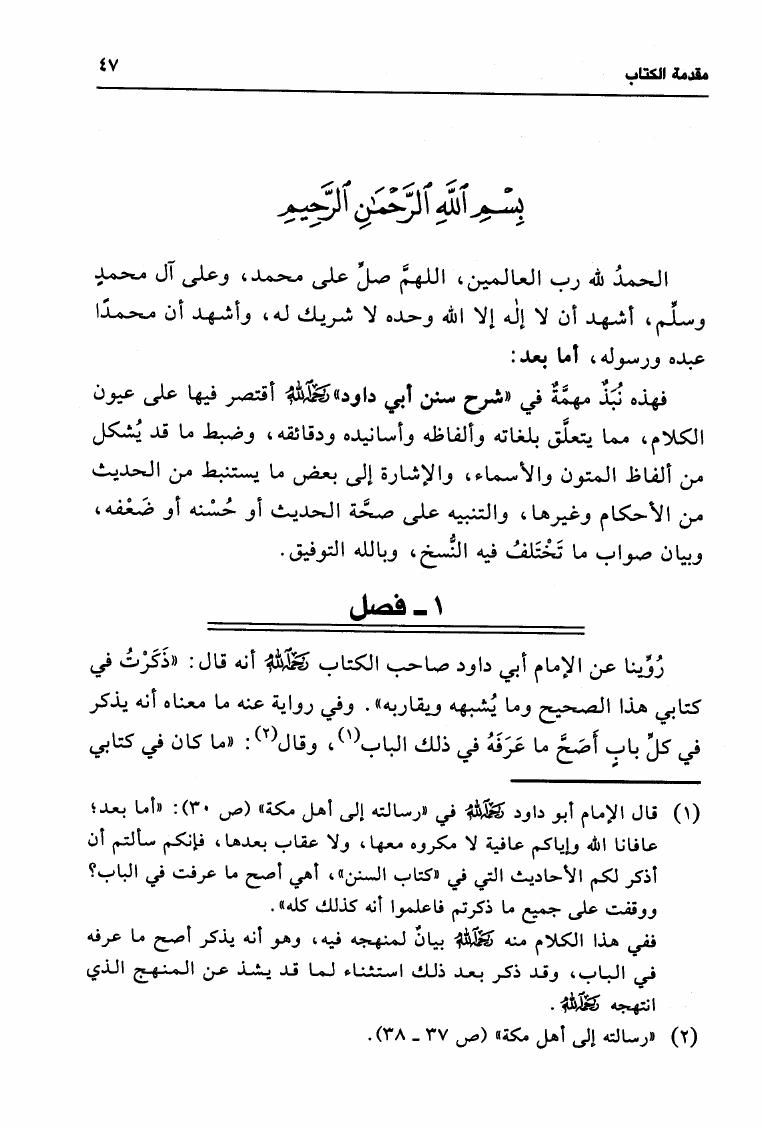 مقدمة الكتاب ٤٧
بِسْمِ ٱللَّهِ ٱلرَّحْمَٰنِ ٱلرَّحِيمِ
الحمدُ لله رب العالمين، اللهمَّ صلِّ على محمد، وعلى آل محمدٍ
وسلِّم، أشهد أن لا إلٰه إلا الله وحده لا شريك له، وأشهد أن محمدًا
عبده ورسوله، أما بعد:
فهذه نُبَذٌ مهمَّةٌ في «شرح سنن أبي داود» رَحِمَهُ اللهُ أقتصر فيها على عيون
الكلام، مما يتعلَّق بلغاته وألفاظه وأسانيده ودقائقه، وضبط ما قد يُشكل
من ألفاظ المتون والأسماء، والإشارة إلى بعض ما يستنبط من الحديث
من الأحكام وغيرها، والتنبيه على صحَّة الحديث أو حُسْنه أو ضَعْفه،
وبيان صواب ما تَخْتَلفُ فيه النُّسخ، وبالله التوفيق.
١ ـ فصل
رُوِّينا عن الإمام أبي داود صاحب الكتاب رَحِمَهُ اللهُ أنه قال: «ذَكَرْتُ في
كتابي هذا الصحيح وما يُشبهه ويقاربه». وفي رواية عنه ما معناه أنه يذكر
في كلِّ بابٍ أَصَحَّ ما عَرَفَهُ في ذلك الباب(١)، وقال(٢): «ما كان في كتابي
(١) قال الإمام أبو داود رَحِمَهُ اللهُ في «رسالته إلى أهل مكة» (ص ٣٠): «أما بعد؛
عافانا الله وإياكم عافية لا مكروه معها، ولا عقاب بعدها، فإنكم سألتم أن
أذكر لكم الأحاديث التي في «كتاب السنن»، أهي أصح ما عرفت في الباب؟
ووقفت على جميع ما ذكرتم فاعلموا أنه كذلك كله».
ففي هذا الكلام منه رَحِمَهُ اللهُ بيانٌ لمنهجه فيه، وهو أنه يذكر أصح ما عرفه
في الباب، وقد ذكر بعد ذلك استثناء لما قد يشذ عن المنهج الذي
انتهجه رَحِمَهُ اللهُ.
(٢) «رسالته إلى أهل مكة» (ص ٣٧ ـ ٣٨).